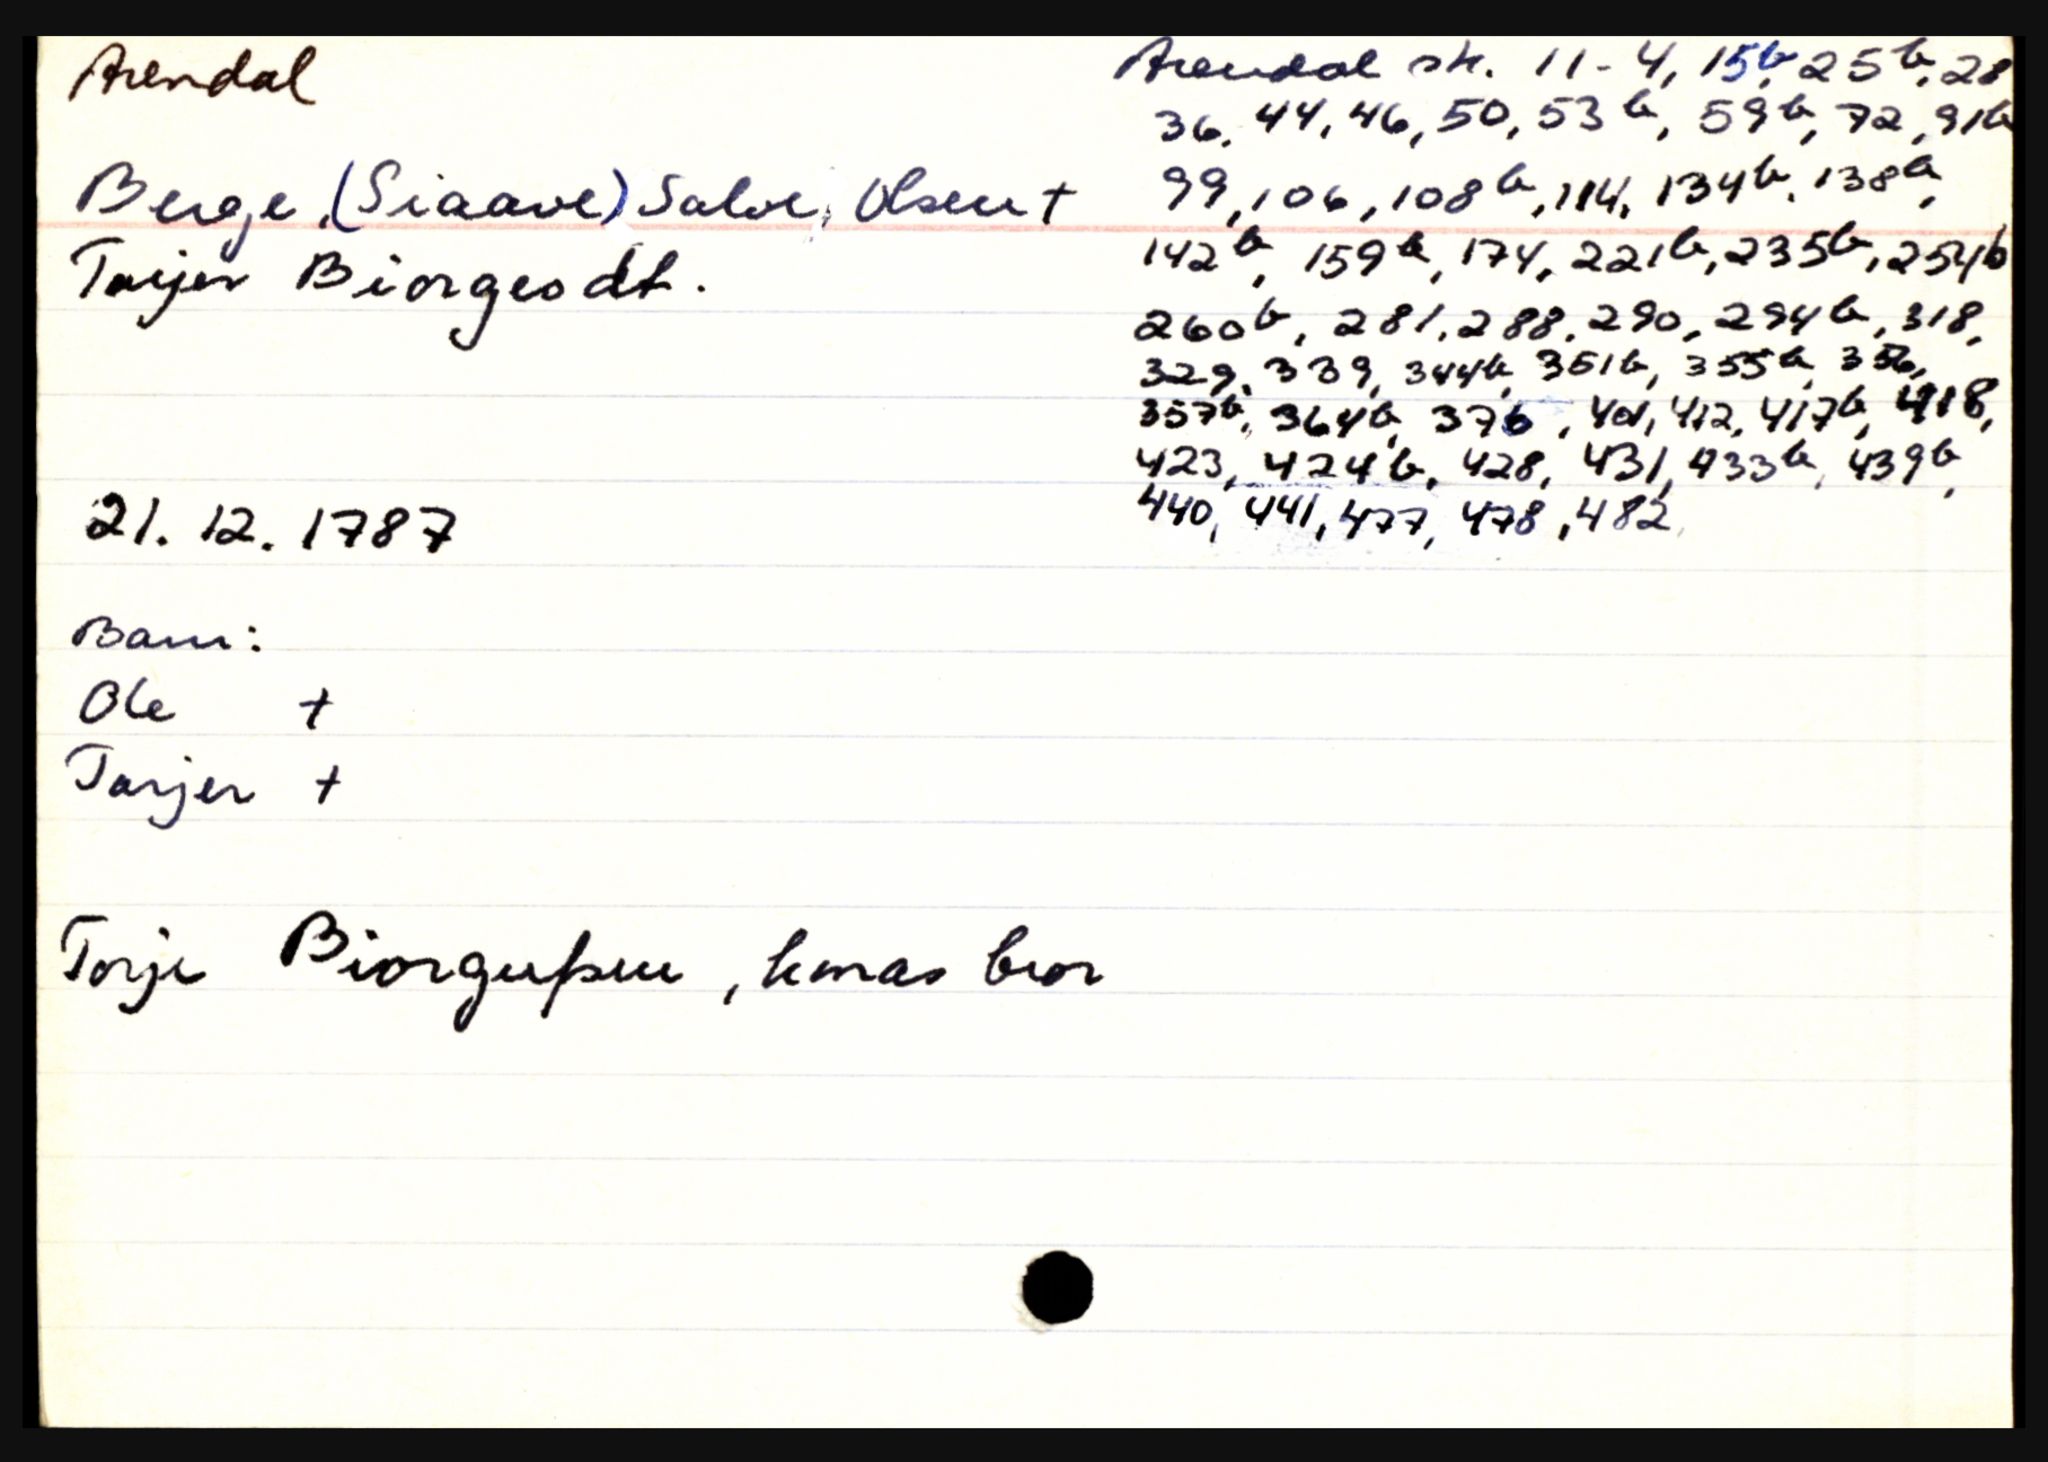 Arendal
Berge, (Siaave) Salve, Olsen +
Tarjer Biorgesdt.
21. 12. 1787
Barn:
Ole +
Tarjer +
Torje Biorgufsen, hmas bror
Arendal sk. 11-4, 15b, 25b, 28
36, 44, 46, 50, 53b, 59b, 72, 91b
99, 106, 108b, 114, 134b, 138b,
142b, 159b, 174, 221b, 235b, 254b
260b, 281, 288, 290, 294b, 318,
329, 339, 344b, 351b, 355b, 356,
357b, 364b, 376, 401, 412, 417b, 418,
423, 424b, 428, 431, 433b, 439b,
440, 441, 477, 478, 482